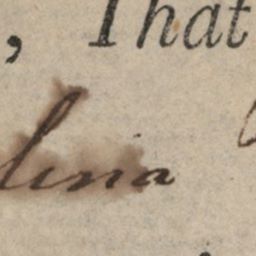 , That
lina